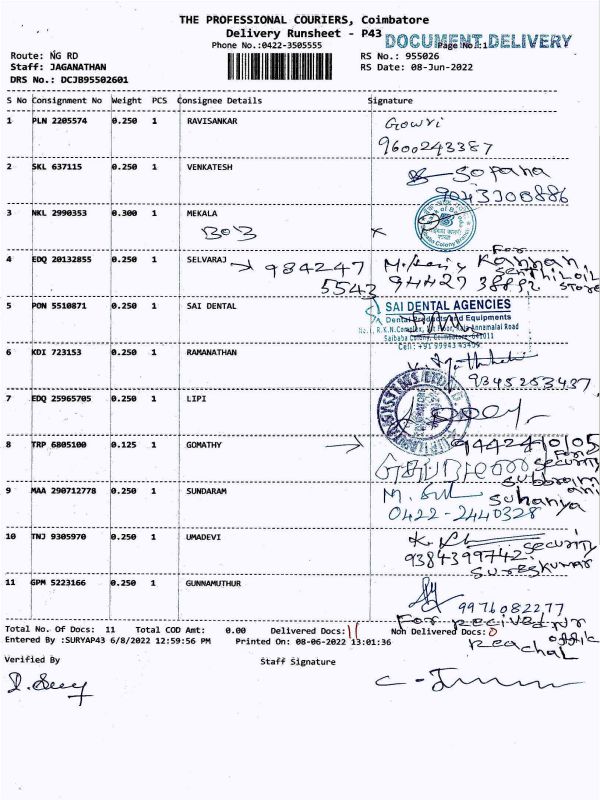 THE PROFESSIONAL COURIERS, Coimbatore
Delivery Runsheet - P43
DOCUMENT DELIVERY
Phone No.:0422-3505555
Page No.:1
Route: NG RD
RS No.: 955026
Staff: JAGANATHAN
RS Date: 08-Jun-2022
DRS No.: DCJB95502601
S No Consignment No Weight PCS Consignee Details Signature
1 PLN 2205574 0.250 1 RAVISANKAR Gowri
9600243387
2 SKL 637115 0.250 1 VENKATESH Sopana
9043300886
3 NKL 2990353 0.300 1 MEKALA
BOB x
4 EDQ 20132855 0.250 1 SELVARAJ 984247 For Kannan
5543 94427 38892 Senthil oil store
5 PON 5510871 0.250 1 SAI DENTAL SAI DENTAL AGENCIES
Dental Products and Equipments
R.K.N.Complex, 1st Floor, Raja Annamalai Road
Saibaba Colony, Coimbatore-641011
Cell: +91 99943 43409
6 KDI 723153 0.250 1 RAMANATHAN
9345253437
7 EDQ 25965705 0.250 1 LIPI
8 TRP 6805100 0.125 1 GOMATHY 9442410105
For security
9 MAA 290712778 0.250 1 SUNDARAM Suhaniya
0422-2440328
10 TNJ 9305970 0.250 1 UMADEVI Security
9384399742 Sureskumar
11 GPM 5223166 0.250 1 GUNNAMUTHUR
9976082277
Total No. Of Docs: 11 Total COD Amt: 0.00 Delivered Docs: 11 Non Delivered Docs: 0
Entered By :SURYAP43 6/8/2022 12:59:56 PM Printed On: 08-06-2022 13:01:36
Verified By Staff Signature